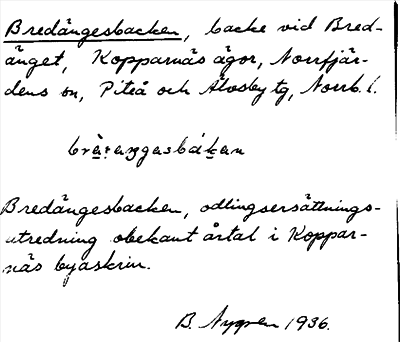 Bredängesbacken, backe vid Bred-
änget, Kopparnäs ägor, Norrfjär-
dens sn, Piteå och Älvsby tg, Norrb. l.
Bredängesbacken, odlingsersättnings-
utredning obekant årtal i Koppar-
näs byaskrin.
B. Nygren 1936.